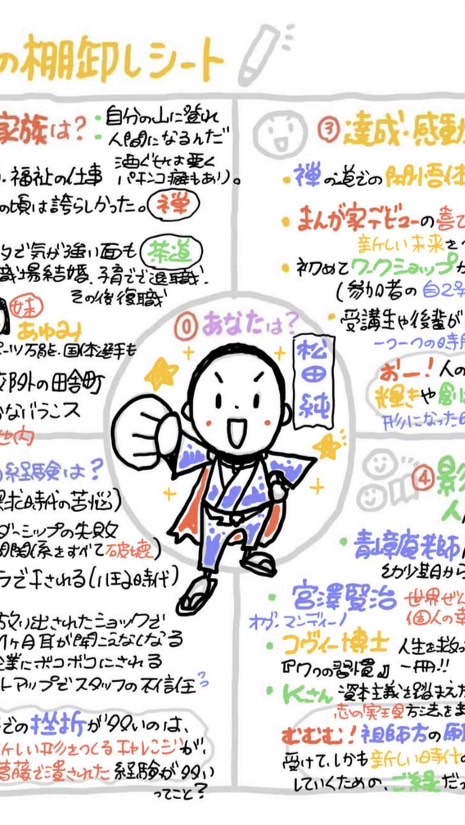 の棚卸しシート
家族は?
自分の山に登れ
人間になるんだ
酒ぐせは悪く
パチンコ癖もあり。
福祉の仕事
の頃は誇らしかった。禅
気が強い面も 茶道
職場結婚、子育てで退職、
その後復職
妹 あゆみ
国体選手も
郊外の田舎町
⓪あなたは?
松田純
③達成・感動
・禅の道での開悟体
・まんが家デビューの喜び
新しい未来を
・初めてワークショップが
(参加者の自己
・受講生や後輩が
一つ一つの時間
おー!人の
輝きや創
形になった
の経験は?
時代の苦悩)
ダーシップの失敗
関係をすべて破壊)
される(
放り出されたショックで
1ヶ月耳が聞こえなくなる
企業にボコボコにされる
トアップでスタッフの不信任
での挫折が多いのは、
新しい形をつくるチャレンジが、
葛藤で潰された経験が多い
ってこと?
④影
人
・青嶂庵老師
幼少期から
・宮澤賢治 世界ぜん
個人の幸
オグ・マンディーノ
・コヴィー博士 人生を救っ
『7つの習慣』一冊!!
・Kさん 資本主義を踏まえた
志の実現方法を
むむむ!祖師方の願
受けて、しかも新しい時代の
していくための、ご縁だっ